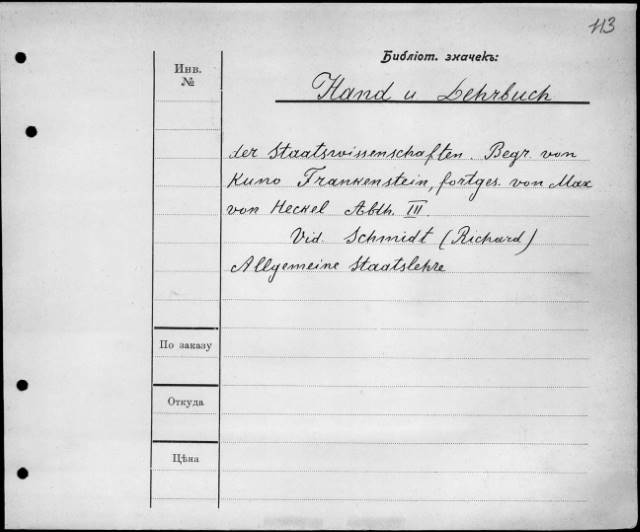 113
Библіот. значекъ:
Инв.
№
Hand u Lehrbuch
der Staatswissenschaften. Begr. von
Kuno Frankenstein, fortges. von Max
von Heckel Abth. III.
Vid. Schmidt (Richard)
Allgemeine Staatslehre
По заказу
Откуда
Цѣна